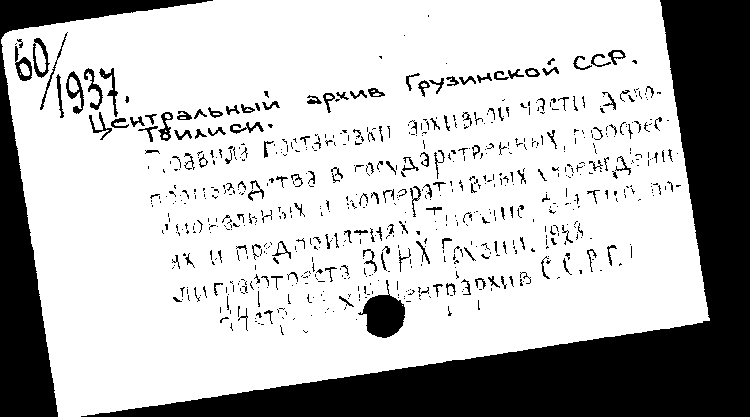 60/1937.
Центральный архив Грузинской ССР.
Тбилиси.
Правила постановки архивной части дело-
производства в государственных, профес-
сиональных и кооперативных учреждени-
ях и предприятиях. Тифлис, тип. по-
лиграфтреста ВСНХ Грузии. 1928.
44 стр. Центрархив С.С.Р.Г.